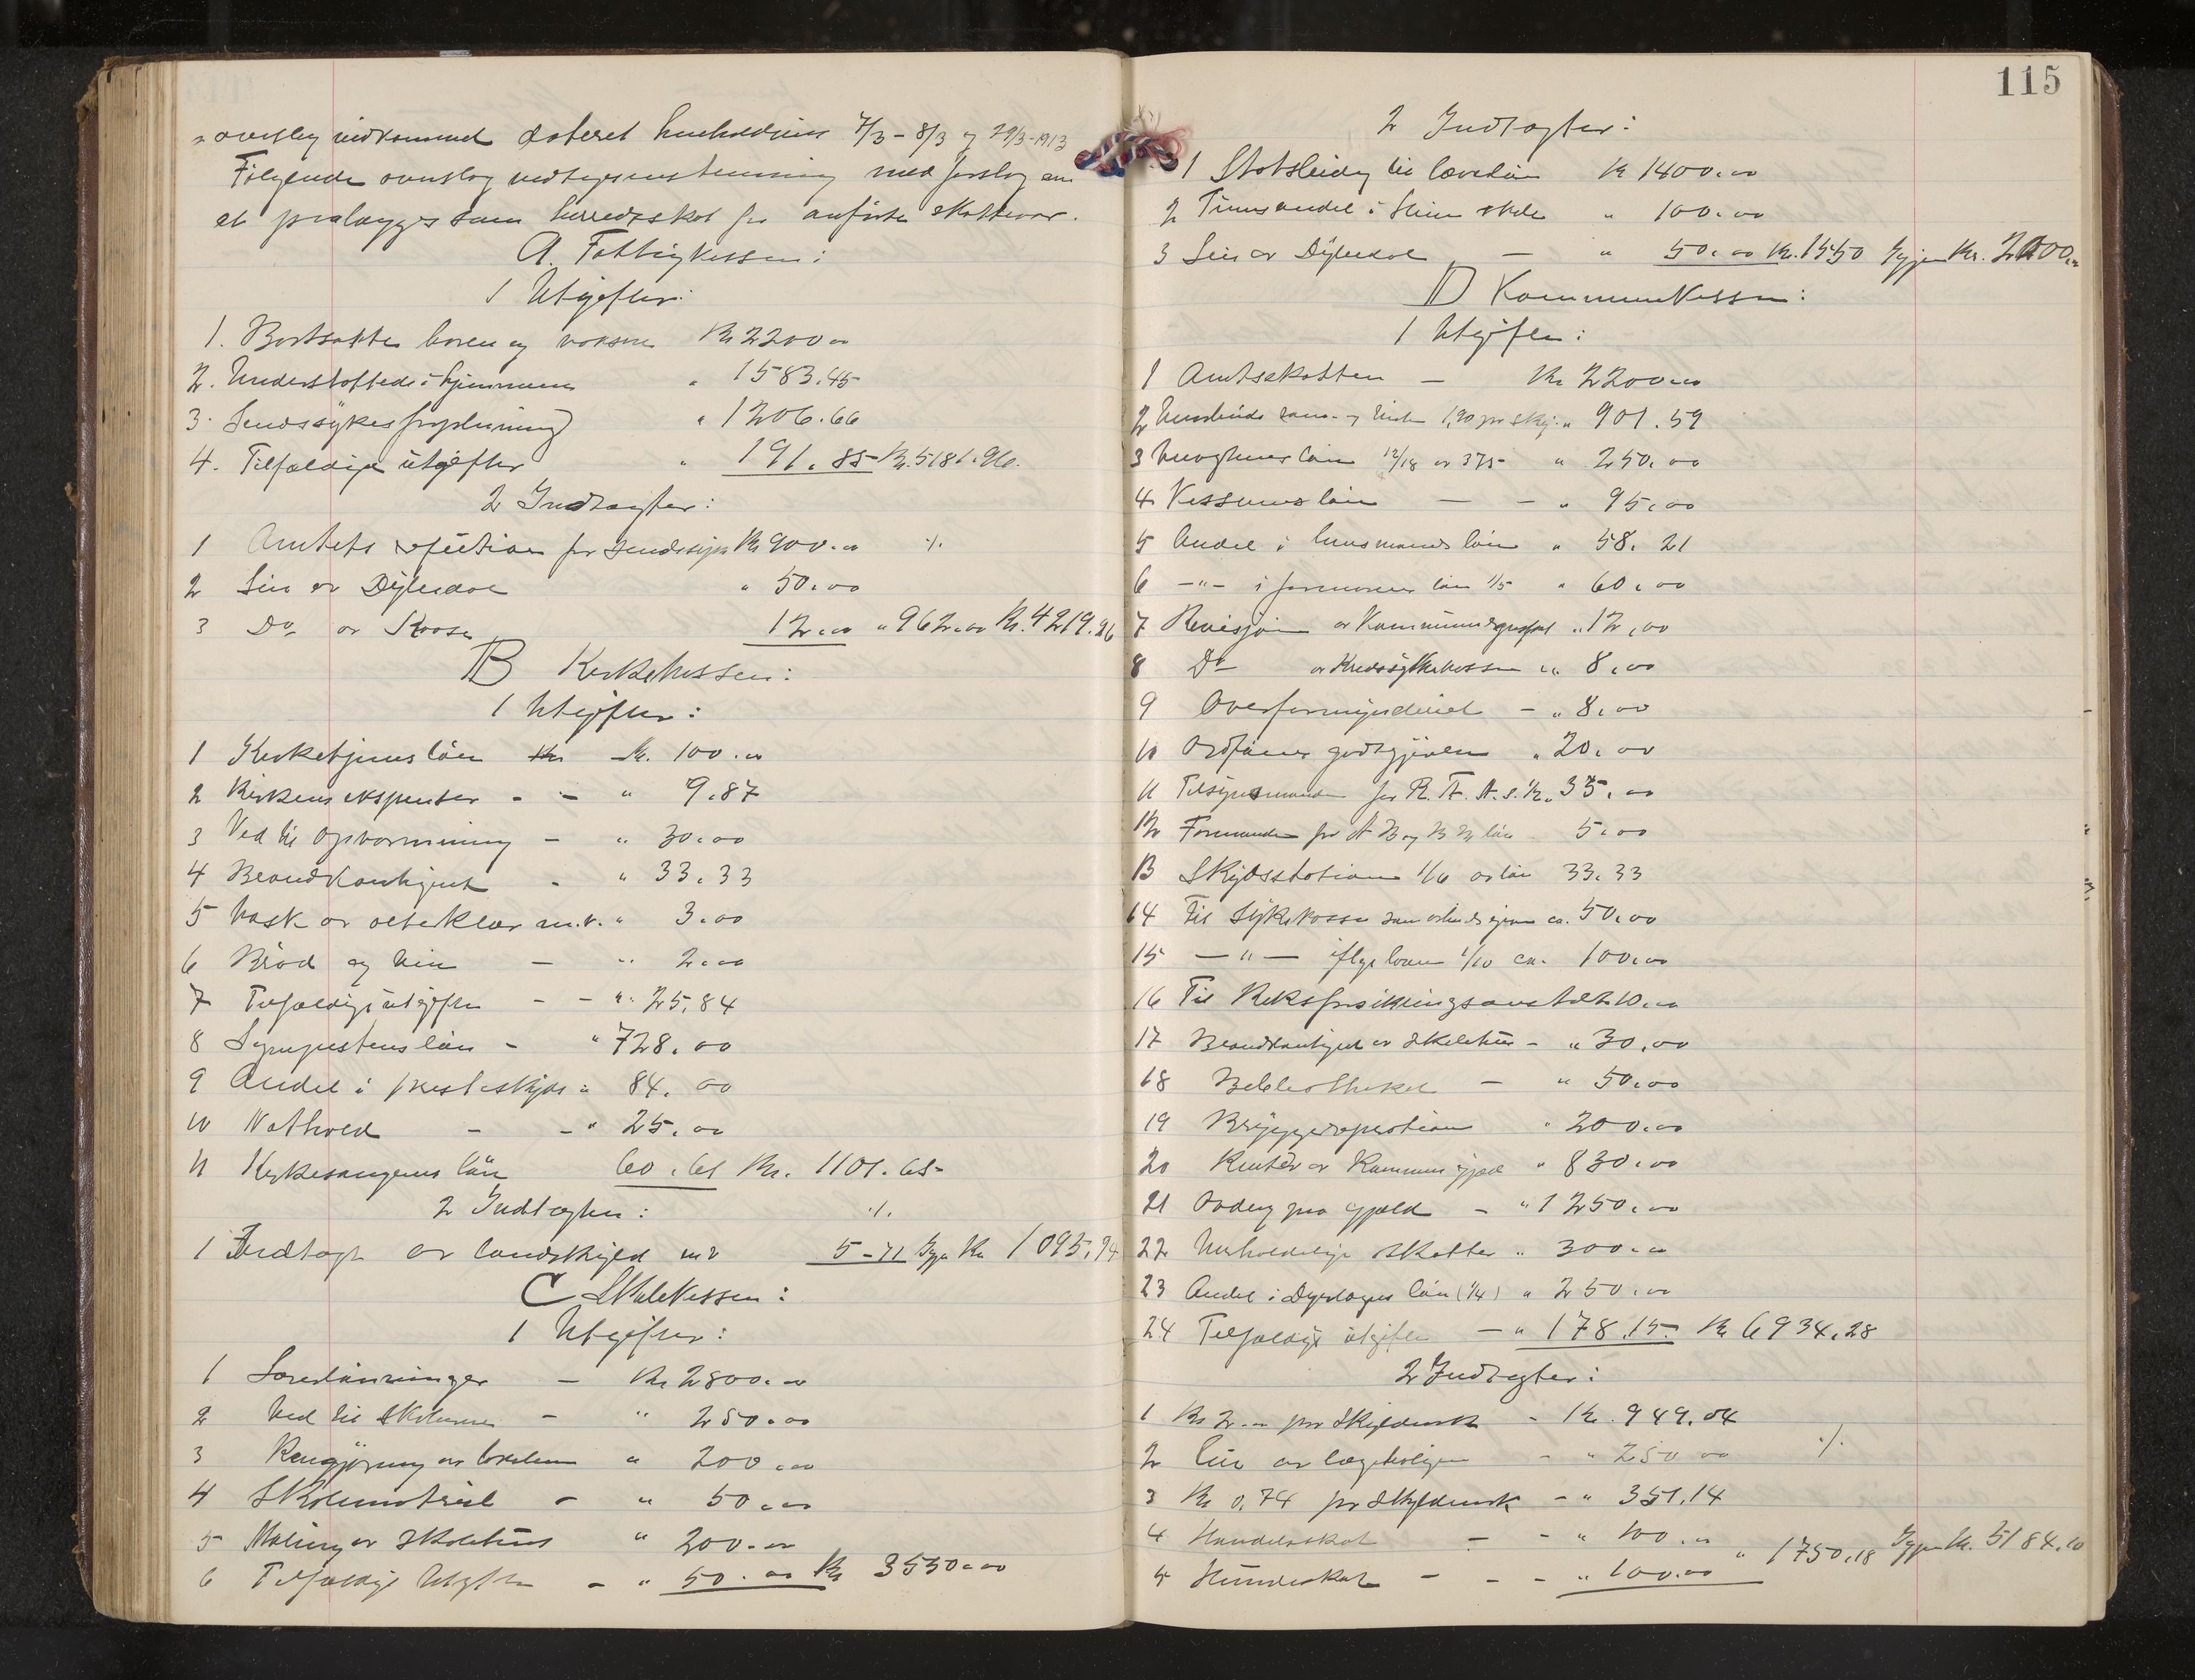 overslag indkommet dateret henholdsvis 7/3 - 8/3 og 29/3-1913
Følgende overslag vedtoges enstemmig med forslag om
at pralægges som herredsskat for anførte skatteaar.
A. Fattigkassen:
1 Utgifter:
1. Bortsatte boren og voksne Kr 2200.00
2. Understøttede i hjemmene " 1583.45
3. Sindssykes forpleining " 1206.66
4. Tilfældige utgifter " 191.85 Kr. 5181.96.
2 Indtægter:
1 Amtets refution for sindssyge Kr 900.00 ./.
2 Leie av Dylerdal " 50.00
3 Do av Kaasa 12.00 " 962.00 Kr. 4219.96
B Kirkekassen:
1 Utgifter:
1 Kirketjeners løn Kr. 100.00
2 Kirkens ekspenser - - " 9.87
3 Ved til opvarmning - " 30.00
4 Brandkontigent - " 33.33
5 Vask av alterklær m.v. " 3.00
6 Brød og vin - " 2.00
7 Tilfældige utgifter - - " 25,84
8 Organistens løn - " 728.00
9 Andel i presteskyds " 84.00
10 Nathold - - " 25.00
11 Kirkesangerens løn 60.61 Kr. 1101.65
2 Indtægter: ./.
1 Indtægt av landskyld m v 5-71 Igjen Kr 1095,94
C Skolekassen:
1 Utgifter:
1 Lærerlønninger - Kr 2800.00
2 Ved til skolerne - " 250.00
3 Rengjøring av lokalerne " 200.00
4 Skolemateriel - " 50.00
5 Maling av skolehus " 200.00
6 Tilfældige Utgifter - " 50.00 Kr 3550.00
115
2 Indtægter:
1 Statsbidrag til lærerløn Kr 1400.00
2 Tinns andel i Heim skole " 100.00
3 Leie av Dylerdal - " 50.00 Kr. 1550 Igjen Kr. 2000.00
D Kommunekassen:
1 Utgifter:
1 Amtsskatten - Kr 2200.00
2 1,90 pr skyl. " 901.59
3 løn 12/18 av 375 " 250.00
4 Kasserers løn - - " 95.00
5 Andel i lensmands løn " 58.21
6 -"- i løn 1/5 " 60.00
7 Revisjon av Kommuneregnskap " 12.00
8 Do av Kredssykekassen " 8.00
9 Overformynderiet - " 8.00
10 Ordførers godtgjørelse " 20.00
11 Tilsynsmanden for " 35.00
12 Formanden for løn 5.00
13 Skydsstationen 1/6 av løn 33.33
14 Til Sykekassen som arbeidsgiver ca. 50.00
15 -"- ifølge loven 1/10 ca. 100.00
16 Til Riksforsikringsanstalt 10.00
17 Brandkontigent av skolehus - " 30.00
18 Bibliotheket - " 50.00
19 Bryggereparation " 200.00
20 Renter av Kommunegjæld " 830.00
21 Avdrag paa gjæld - " 1250.00
22 Uerholdelige skatter " 300.00
23 Andel i Dyrlægens løn (1/4) " 250.00
24 Tilfældige utgifter - " 178.15 Kr 6934.28
2 Indtægter:
1 Kr 2.00 pr Skyldmark - Kr. 949.04
2 Leie av lægeboligen - " 250 00 ./.
3 Kr 0,74 pr Skyldmark - " 351.14
4 Handelsskat - - " 100.00
5 Hundeskat - - - " 100.00 " 1750.18 Igjen Kr. 5184.10